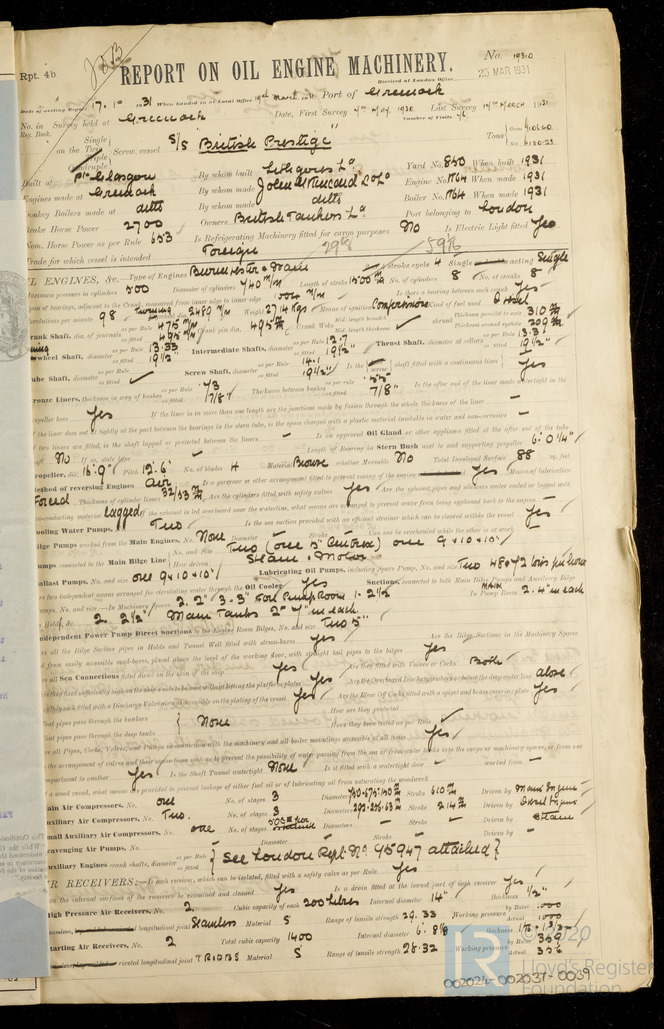 Rpt. 4b
REPORT ON OIL ENGINE MACHINERY.
No. 19310
Received at London Office 23 MAR 1931
Date of writing Report 17. 1931 When handed in at Local Office 19th March 1931 Port of Greenock
No. in Survey held at Greenock Date, First Survey 7th May, 1930 Last Survey 14th MARCH 1931
Reg. Book. Number of Visits
Single on the Twin Triple Quadruple Screw vessel S/S "British Prestige" Tons
Built at Pt Glasgow By whom built Lithgows Ld Yard No. 850 When built 1931
Engines made at Greenock By whom made John G Kincaid & Co Ld Engine No. 1764 When made 1931
Donkey Boilers made at ditto By whom made ditto Boiler No. 1764 When made 1931
Brake Horse Power 2700 Owners British Tanker Co Ld Port belonging to London
Nom. Horse Power as per Rule 653 Is Refrigerating Machinery fitted for cargo purposes No Is Electric Light fitted Yes
Trade for which vessel is intended Foreign
OIL ENGINES, &c. Type of Engines Burmeister & Wain 4 stroke cycle 4 Single acting Single
Maximum pressure in cylinders 500 Diameter of cylinders 740 m/m Length of stroke 1500 m/m No. of cylinders 8 No. of cranks 8
Span of bearings, adjacent to the Crank, measured from inner edge to inner edge 1004 m/m Is there a bearing between each crank Yes
Revolutions per minute 98 Turning wheel 2489 m/m Weight Means of ignition Compression Kind of fuel used Diesel
Crank Shaft, dia. of journals as per Rule 475 m/m as fitted 495 m/m Crank pin dia. 495 m/m Crank Webs Mid. length breadth Mid. length thickness Thickness parallel to axis 310 m/m Thickness around eyehole 209 m/m
Flywheel Shaft, diameter as per Rule 13.33 as fitted 19 1/2" Intermediate Shafts, diameter as per Rule 12.7 as fitted 19 1/2" Thrust Shaft, diameter at collars as per Rule 13.3 as fitted 19 1/2"
Tube Shaft, diameter as per Rule as fitted Screw Shaft, diameter as per Rule 14.1 as fitted 19 1/2" Is the screw shaft fitted with a continuous liner Yes
Bronze Liners, thickness in way of bushes as per Rule .73 as fitted 7/8" Thickness between bushes as per rule .55 as fitted 7/8" Is the after end of the liner made watertight in the
propeller boss Yes If the liner is in more than one length are the junctions made by fusion through the whole thickness of the liner –
If the liner does not fit tightly at the part between the bearings in the stern tube, is the space charged with a plastic material insoluble in water and non-corrosive –
If two liners are fitted, is the shaft lapped or protected between the liners – Is an approved Oil Gland or other appliance fitted at the after end of the tube
shaft No If so, state type Length of Bearing in Stern Bush next to and supporting propeller 6' 0 1/4"
Propeller, dia. 16' 9" Pitch 12' 6" No. of blades 4 Material Bronze whether Moveable No Total Developed Surface 88 sq. feet
Method of reversing Engines Air Is a governor or other arrangement fitted to prevent racing of the engine Yes Means of lubrication
Forced Thickness of cylinder liners 52/53 m/m Are the cylinders fitted with safety valves Yes Are the exhaust pipes and silencers water cooled or lagged with
non-conducting material Lagged If the exhaust is led overboard near the waterline, what means are arranged to prevent water from being syphoned back to the engine –
Cooling Water Pumps, No. Two Is the sea suction provided with an efficient strainer which can be cleared within the vessel Yes
Bilge Pumps worked from the Main Engines, No. None Diameter – Stroke – Can one be overhauled while the other is at work –
Pumps connected to the Main Bilge Line No. and Size Two (one 5" Centrifl) one 9 x 10 x 10" How driven Steam & Motor
Ballast Pumps, No. and size one 9 x 10 x 10" Lubricating Oil Pumps, including Spare Pump, No. and size Two 480 & 72 tons per hour
Are two independent means arranged for circulating water through the Oil Cooler Yes Suctions, connected to both Main Bilge Pumps and Auxiliary Bilge
Pumps, No. and size:—In Machinery Spaces 2. 2" 3-3" Ford Pump Room 1-2 1/2 In Pump Room MAIN 2. 4" in each
In Holds, &c. 2. 2 1/2" Main Tanks
Independent Power Pump Direct Suctions to the Engine Room Bilges, No. and size Two 5"
Are all the Bilge Suction pipes in Holds and Tunnel Well fitted with strum-boxes Yes Are the Bilge Suctions in the Machinery Spaces
led from easily accessible mud-boxes, placed above the level of the working floor, with straight tail pipes to the bilges Yes
Are all Sea Connections fitted direct on the skin of the ship Yes Are they fitted with Valves or Cocks Both
Are they fixed sufficiently high on the ship's side to be seen without lifting the platform plates Yes Are the Overboard Discharges above or below the deep water line above
Are they each fitted with a Discharge Valve always accessible on the plating of the vessel Yes Are the Blow Off Cocks fitted with a spigot and brass covering plate Yes
What pipes pass through the bunkers None How are they protected
What pipes pass through the deep tanks Have they been tested as per Rule
Are all Pipes, Cocks, Valves, and Pumps in connection with the machinery and all boiler mountings accessible at all times Yes
Is the arrangement of valves and their connections such as to prevent the possibility of water passing from the sea or from water tanks into the cargo or machinery spaces, or from one
compartment to another Yes Is the Shaft Tunnel watertight None Is it fitted with a watertight door – worked from –
If a wood vessel, what means are provided to prevent leakage of either fuel oil or of lubricating oil from saturating the woodwork
Main Air Compressors, No. one No. of stages 3 Stroke 610 m/m Driven by Main Engine
Auxiliary Air Compressors, No. Two. No. of stages 3 Stroke Driven by Diesel Engine
Small Auxiliary Air Compressors, No. one No. of stages Diameters – Stroke – Driven by Steam
Scavenging Air Pumps, No. – Diameter – Stroke – Driven by –
Auxiliary Engines crank shafts, diameter as per Rule as fitted {See London Rpt. No. 95947 attached}
AIR RECEIVERS:—Is each receiver, which can be isolated, fitted with a safety valve as per Rule Yes
Can the internal surfaces of the receivers be examined and cleaned Yes Is a drain fitted at the lowest part of each receiver Yes
High Pressure Air Receivers, No. 2 Cubic capacity of each 200 litres Internal diameter 14" thickness 1/2"
Seamless, lap welded or riveted longitudinal joint Seamless Material S Range of tensile strength 29.33 Working pressure by Rules 1000 Actual 1000
Starting Air Receivers, No. 2 Total cubic capacity 1400 Internal diameter thickness
Seamless, lap welded or riveted longitudinal joint T R I D B S Material S Range of tensile strength 28.32 Working pressure by Rules 359 Actual 356
© 2020
Lloyd's Register
Foundation
002024-002037-0039